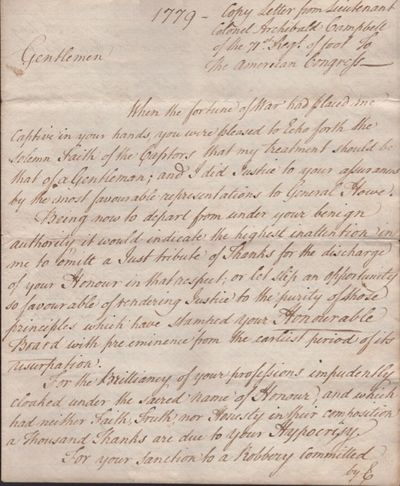 1779 - Copy Letter from Lieutenant
Colonel Archibald Campbell
of the 71st Regt. of foot To
The American Congress
Gentlemen
When the fortune of War had placed me
Captive in your hands, you were pleased to Echo forth the
Solemn Faith of the Captors that my treatment should be
that of a Gentleman; and I did Justice to your assurances
by the most favourable representations to General Howe.
Being now to depart from under your benign
authority, it would indicate the highest inattention in
me to omitt a Just tribute of Thanks for the discharge
of your Honour in that respect; or let slip an opportunity
so favourable of rendering Justice to the purity of those
principles which have stamped your Honourable
Board with pre eminence from the earliest period of its
usurpation.
For the Brilliancy of your professions impudently
cloaked under the sacred name of Honour, and which
had neither Faith, Truth, nor Honesty in their composition
a Thousand Thanks are due to your Hypocrisy.
For your sanction to a Robbery committed
by E